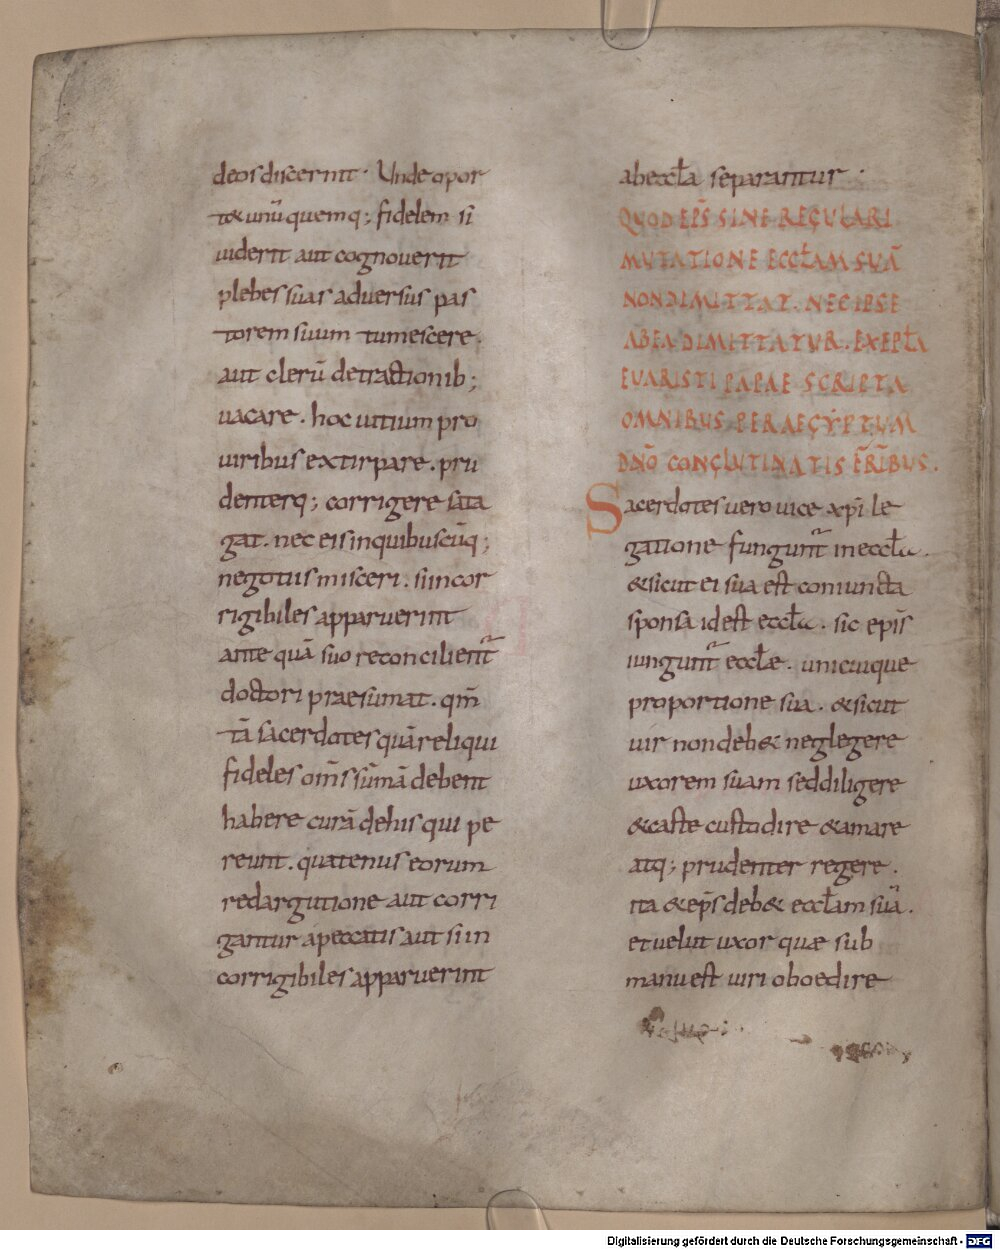 deos discernit. Unde opor
t& unū quemq; fidelem si
uiderit aut cognouerit
plebes suas adversus pas
torem suum tumescere.
aut clerū detractionib;
uacare. hoc uitium pro
uiribus extirpare. pru
denterq; corrigere sata
gat. nec eis in quibuscūq;
negotiis misceri. si incor
rigibiles apparuerint
ante quā suo reconcilient̃
doctori praesumat. qm̄
tā sacerdotes quā reliqui
fideles om̄s sūmā debent
habere curā de his qui pe
reunt. quatenus eorum
redargutione aut corri
gantur a peccatis aut si in
corrigibiles apparuerint
ab eccł̄a separantur.
QUOD EP̄S SINE REGULARI
MUTATIONE ECCŁAM SUĀ
NON DIMITTAT. NEC IPSE
AB EA DIMITTATUR. EX EPŁA
EVARISTI PAPAE SCRIPTA
OMNIBUS PER AEGYPTUM
DN̄O CONGLUTINATIS FR̄IBUS.
Sacerdotes uero uice xp̄i le
gatione fungunt̃ in eccła.
& sicut ei sua est coniuncta
sponsa id est eccła. sic ep̄is
iungunt̃ eccłe. unicuique
pro portione sua. & sicut
uir non deb& neglegere
uxorem suam sed diligere
& caste custodire & amare
atq; prudenter regere.
ita & ep̄s deb& eccłam suā.
et uelut uxor quae sub
manu est uiri oboedire
Digitalisierung gefördert durch die Deutsche Forschungsgemeinschaft - DFG